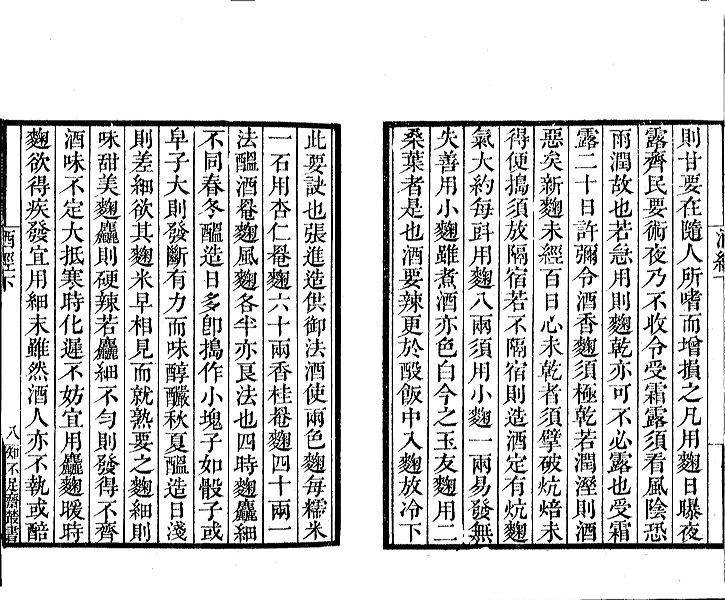 酒經
則甘要在隨人所嗜而增損之凡用麴日曝夜
露齊民要術夜乃不收令受霜露須看風陰恐
雨潤故也若急用則麴乾亦可不必露也受霜
露二十日許彌令酒香麴須極乾若潤溼則酒
惡矣新麴未經百日心未乾者須擘破炕焙未
得便搗須放隔宿若不隔宿則造酒定有炕麴
氣大約每㪷用麴八兩須用小麴一兩易發無
失善用小麴雖煮酒亦色白今之玉友麴用二
桑葉者是也酒要辣更於酘飯中入麴放冷下
此要訣也張進造供御法酒使兩色麴每糯米
一石用杏仁罨麴六十兩香桂罨麴四十兩一
法醞酒罨麴風麴各半亦良法也四時麴麤細
不同春冬醞造日多卽搗作小塊子如骰子或
皁子大則發斷有力而味醇釅秋夏醞造日淺
則差細欲其麴米早相見而就熟要之麴細則
味甜美麴麤則硬辣若麤細不勻則發得不齊
酒味不定大抵寒時化遲不妨宜用麤麴暖時
麴欲得疾發宜用細末雖然酒人亦不執或醅
酒經下
八
知不足齋叢書